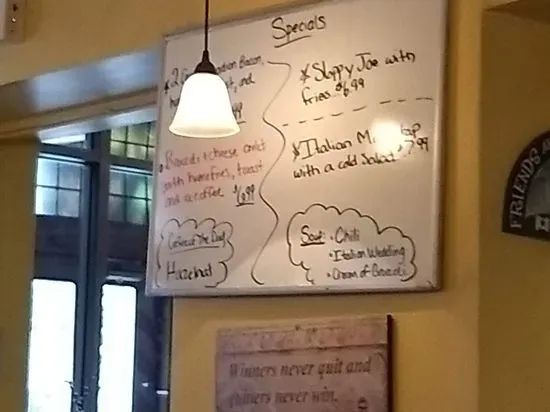 Specials
*2 Bacon,
and
• Broccoli + cheese omlet
with homefries, toast
and a coffee $6.99
Coffee of The Day
Hazelnut
* Sloppy Joe with
fries $6.99
* Italian
with a cold Salad $7.99
Soup: • Chili
• Italian Wedding
• Cream of Broccoli
FRIENDS
Winners never quit and
quitters never win.